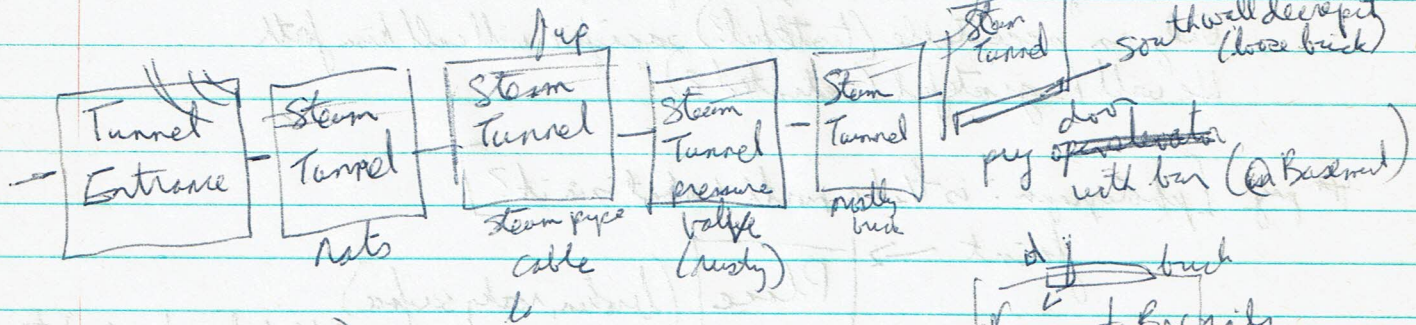 Tunnel
Entrance
Steam
Tunnel
rats
up
Steam
Tunnel
steam pipe
cable
Steam
Tunnel
pressure
valve
(rusty)
Steam
Tunnel
mostly
brick
Steam
Tunnel
south wall decrepit
(loose brick)
door
pry
with bar (@ Basement)
brick